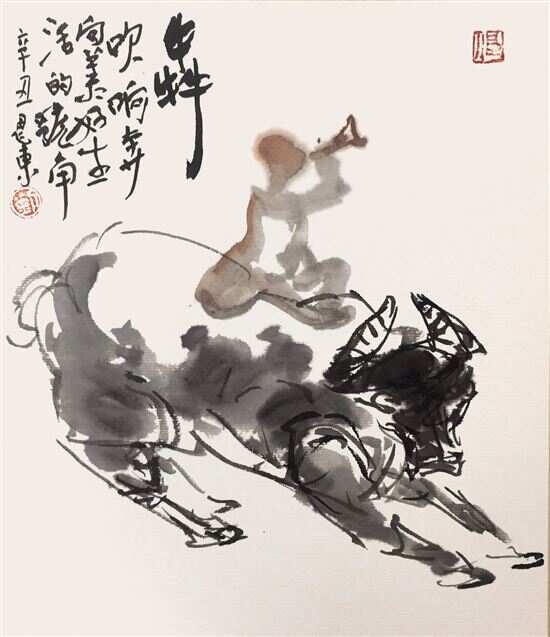 犇
吹响奔
向美好生
活的號角
辛丑 東